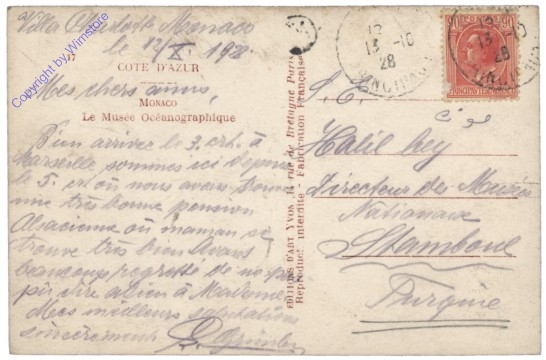 Villa Charlotte Monaco
le 12/X 1928
17
COTE D'AZUR
Mes chers amis,
MONACO
Le Musée Océanographique
Bien arrivés le 3. crt. à
Marseille, sommes ici depuis
le 5. crt où nous avons trouvé
une très bonne pension
Alsacienne où maman se
trouve très bien. Avons
beaucoup regretté de ne pas
dire adieu à Madame
Mes meilleurs salutations
sincèrement
EDITIONS D'ART YVON, rue de Bretagne Paris
Reproduct. interdite - Fabrication Française
13 -10
28
90
S. E.
Halil bey
Directeur des Musées
Nationaux
Stamboul
Turquie
Copyright by Winstore